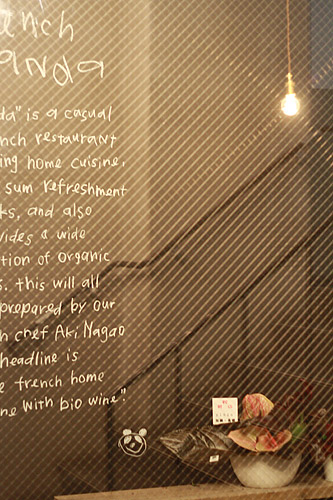 ench
anda
da" is a casual
nch restaurant
ing home cuisine,
sum refreshment
ks, and also
vides a wide
tion of organic
s. this will all
prepared by our
h chef Aki Nagao
headline is
e french home
ne with bio wine".